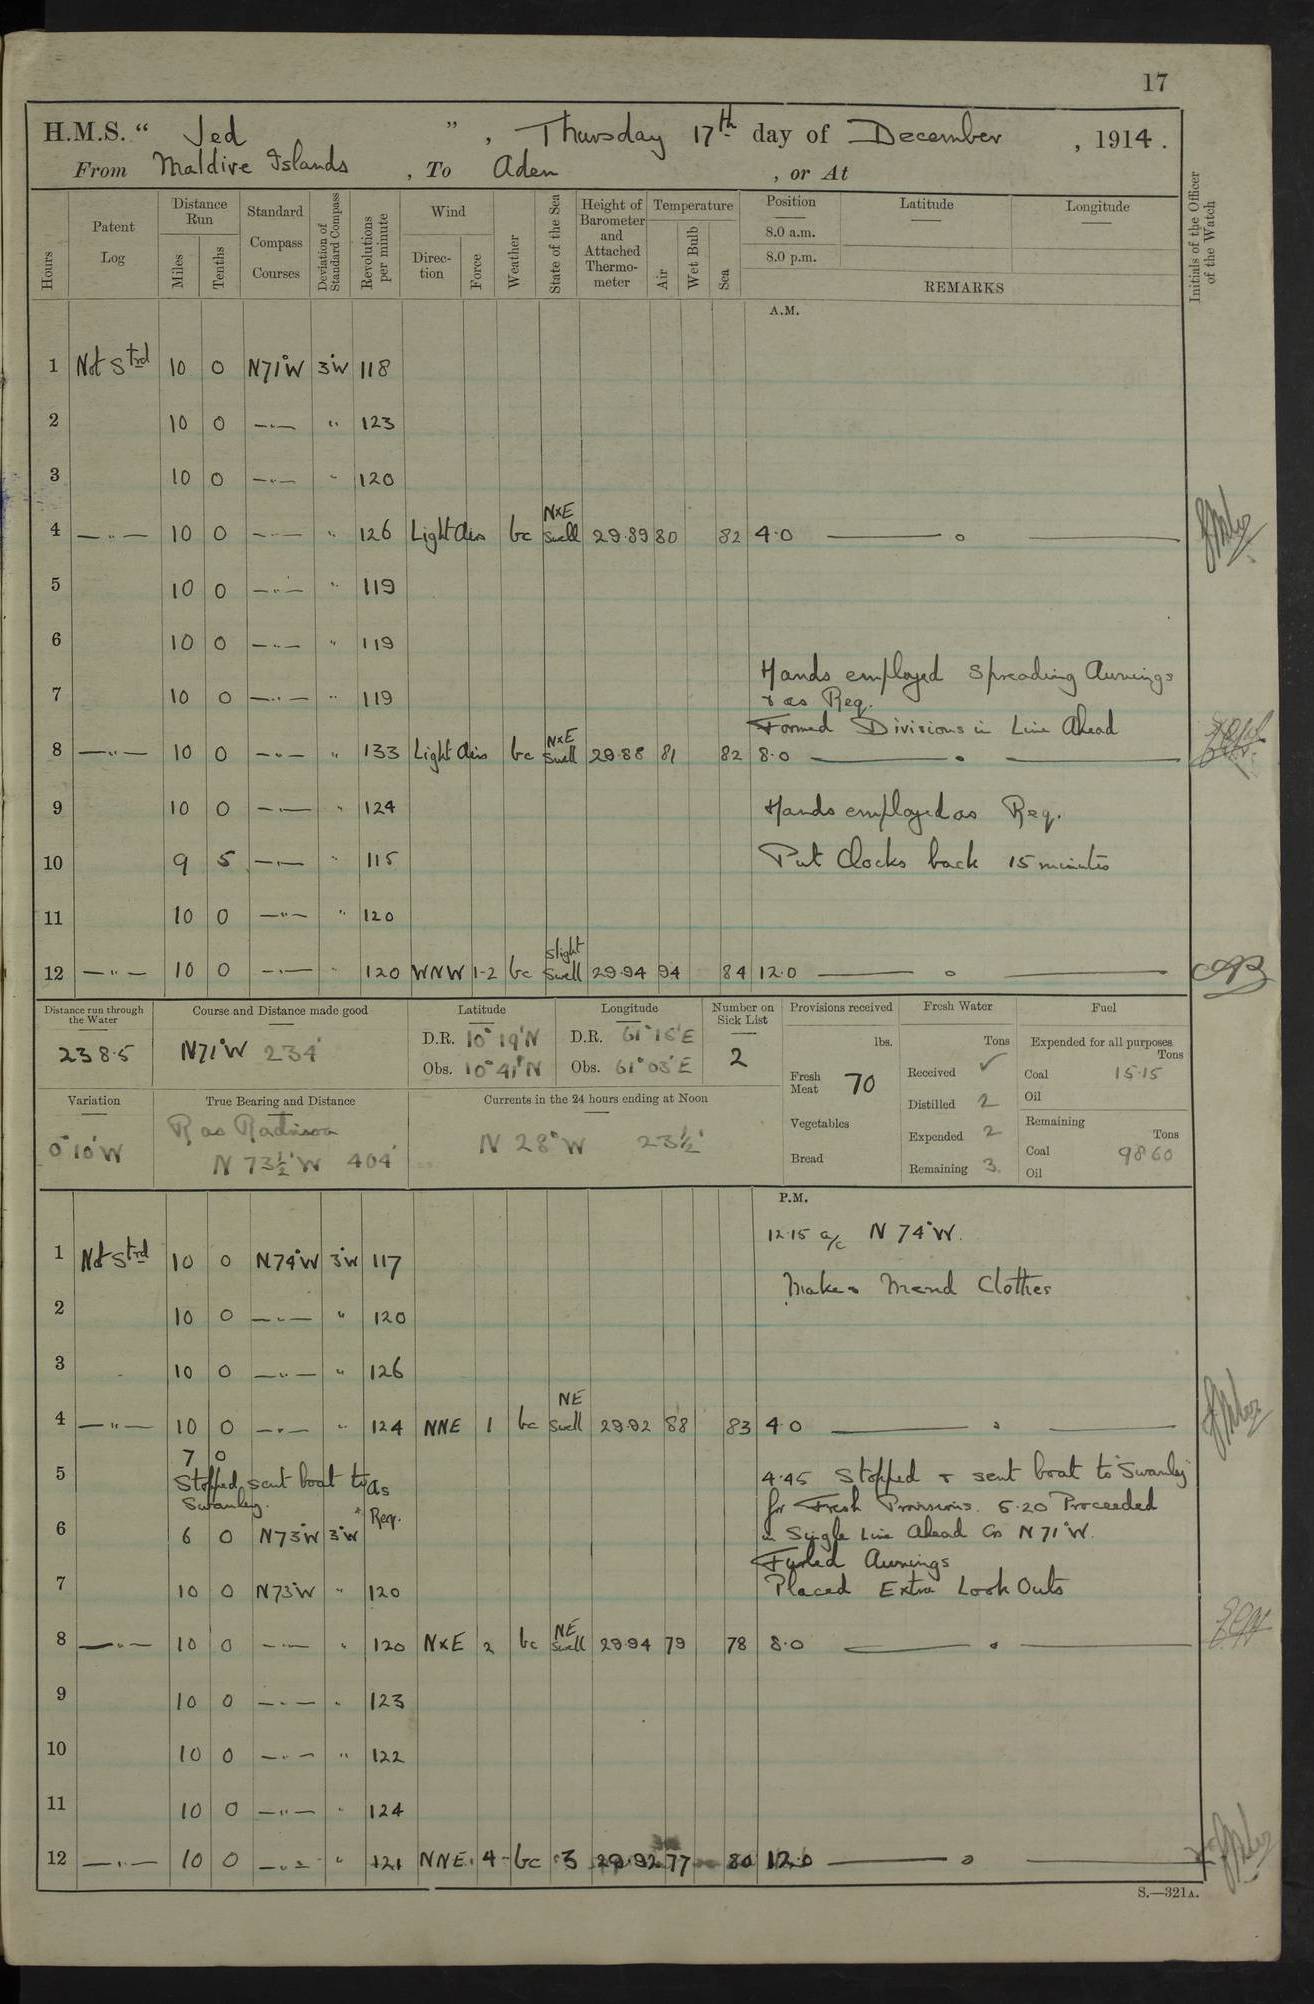 17
H.M.S. " Jed " , Thursday 17th day of December , 1914 .
From Maldive Islands , To Aden , or At
Hours
Patent Log
Distance Run
Miles
Tenths
Standard Compass Courses
Deviation of Standard Compass
Revolutions per minute
Wind
Direction
Force
Weather
State of the Sea
Height of Barometer and Attached Thermometer
Temperature
Air
Wet Bulb
Sea
Position
8.0 a.m.
8.0 p.m.
Latitude
Longitude
REMARKS
Initials of the Officer of the Watch
A.M.
1 Not Strd 10 0 N71°W 3°W 118
2 10 0 —"— " 123
3 10 0 —"— " 120
4 —"— 10 0 —"— " 126 Light airs bc NxE Swell 29.89 80 82 4.0 —— o ——
5 10 0 —"— " 119
6 10 0 —"— " 119
Hands employed Spreading Awnings
7 10 0 —"— " 119 & as Req.
Formed Divisions in Line Ahead
8 —"— 10 0 —"— " 133 Light airs bc NxE Swell 29.88 81 82 8.0 —— o ——
9 10 0 —"— " 124 Hands employed as Req.
10 9 5 —"— " 115 Put Clocks back 15 minutes
11 10 0 —"— " 120
12 —"— 10 0 —"— " 120 WNW 1-2 bc Slight Swell 29.94 94 84 12.0 —— o ——
Distance run through the Water
238.5
Course and Distance made good
N71°W 234'
Latitude
D.R. 10° 19'N
Obs. 10° 41'N
Longitude
D.R. 61° 15'E
Obs. 61° 03'E
Number on Sick List
2
Provisions received
lbs.
Fresh Meat 70
Vegetables
Bread
Fresh Water
Tons
Received ✓
Distilled 2
Expended 2
Remaining 3
Fuel
Expended for all purposes
Tons
Coal 15.15
Oil
Remaining
Tons
Coal 98.60
Oil
Variation
0° 10'W
True Bearing and Distance
Ras
N 73½°W 404'
Currents in the 24 hours ending at Noon
N 28°W 23½'
P.M.
12.15 a/c N 74°W.
1 Not Strd 10 0 N74°W 3°W 117
Make & Mend Clothes
2 10 0 —"— " 120
3 10 0 —"— " 126
4 —"— 10 0 —"— " 124 NNE 1 bc NE Swell 29.92 88 83 4.0 —— " ——
7 0
5 Stopped, sent boat to Swanley. as Req. 4.45 Stopped & sent boat to "Swanley"
for Fresh Provisions. 5.20 Proceeded
6 6 0 N73°W 3°W in Single Line Ahead Co N 71°W.
Furled Awnings
7 10 0 N73°W " 120 Placed Extra Look Outs
8 —"— 10 0 —"— " 120 NxE 2 bc NE Swell 29.94 79 78 8.0 —— o ——
9 10 0 —"— " 123
10 10 0 —"— " 122
11 10 0 —"— " 124
12 —"— 10 0 —"— " 121 NNE 4 bc 3 29.92 77 80 12.0 —— o ——
S.—321A.